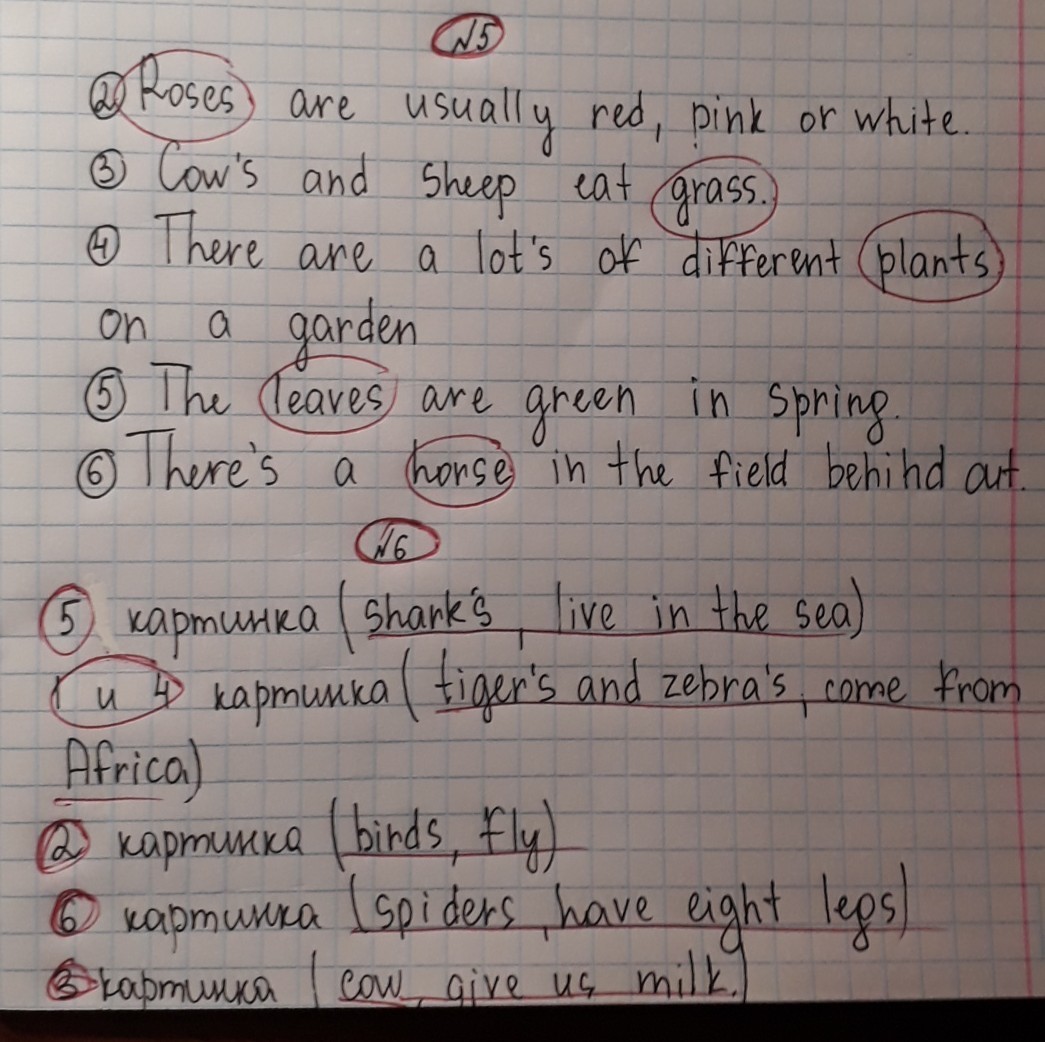 №5
② Roses are usually red, pink or white.
③ Cow's and sheep eat grass.
④ There are a lot's of different plants
on a garden
⑤ The leaves are green in spring.
⑥ There's a horse in the field behind out.
№6
⑤ картинка (shark's, live in the sea)
1 и 4 картинка (tiger's and zebra's, come from
Africa)
② картинка (birds, fly)
⑥ картинка (spiders, have eight legs)
③ картинка (cow, give us milk.)